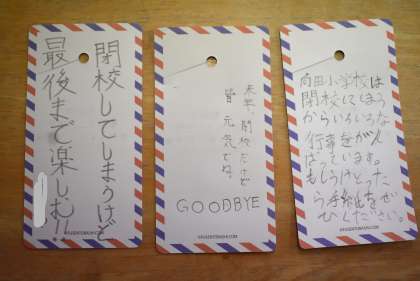 閉校してしまうけど
最後まで楽しむ!!
来年、閉校だけど
皆元気でね。
GOODBYE
向田小学校は
閉校してしまう
からいろいろな
行事をがん
ばっています。
もしうけとった
ら手紙をぜ
ひください。